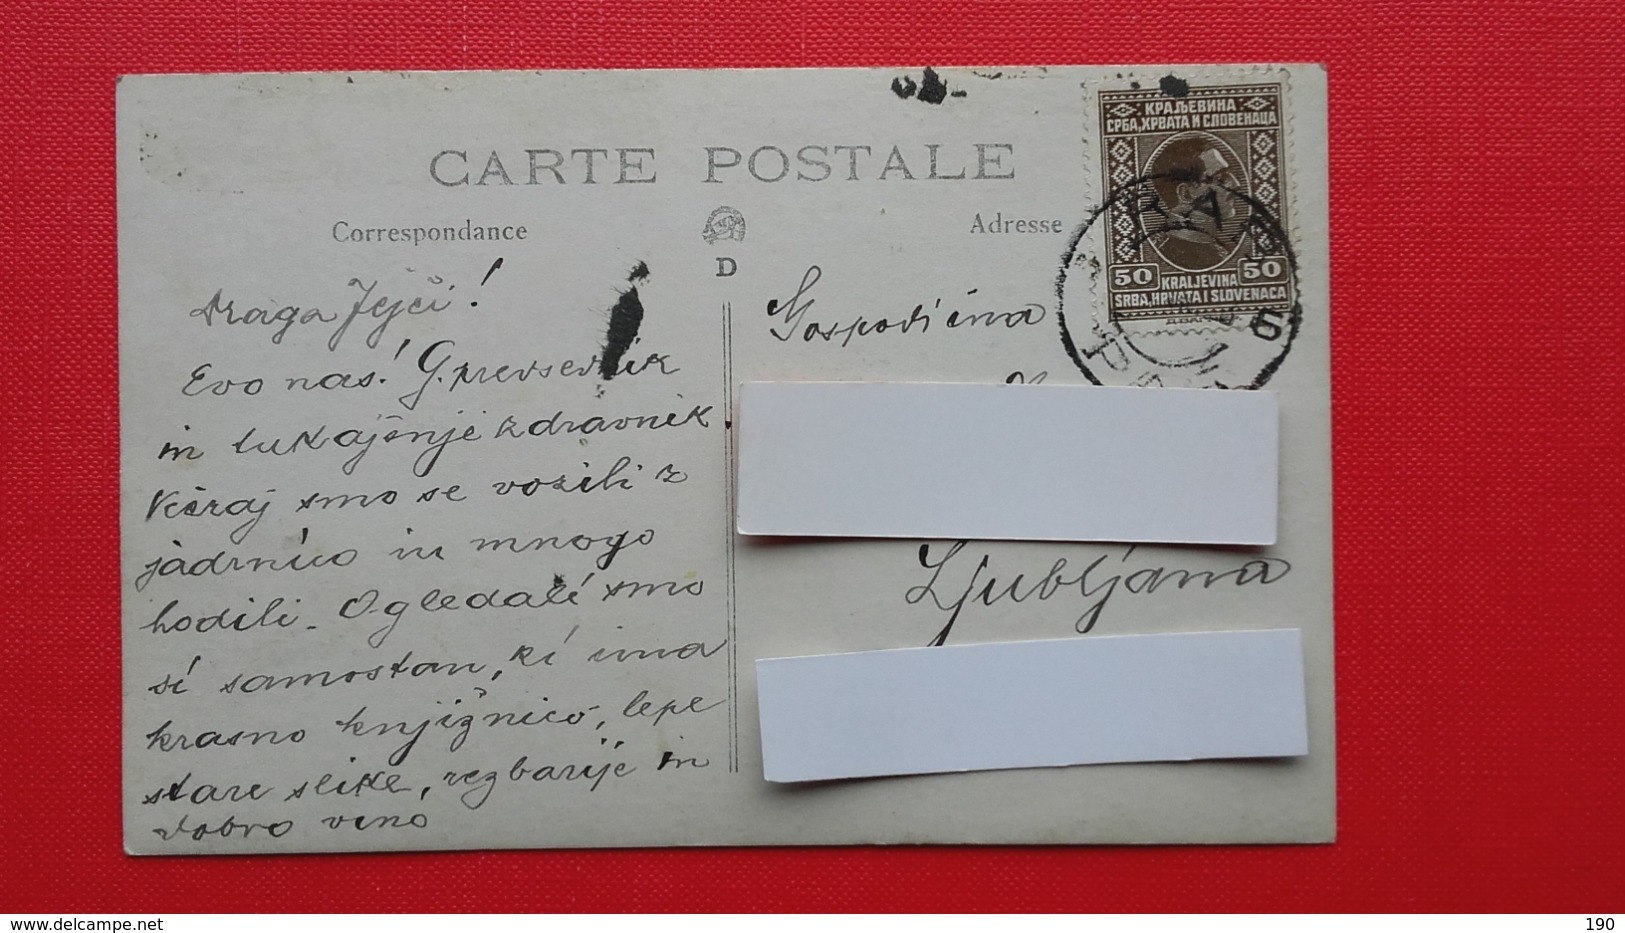 CARTE POSTALE
Correspondance
Adresse
D
Draga Jejči!
Evo nas! G. prevsednik
in tukajšnje zdravnik
Včeraj smo se vozili z
jadrnico in mnogo
hodili. Ogledali smo
si samostan, ki ima
krasno knjižnico, lepe
stare slike, rezbarije in
dobro vino
Gospodična
Ljubljana
КРАЉЕВИНА
СРБА, ХРВАТА И СЛОВЕНАЦА
50 50
KRALJEVINA
SRBA, HRVATA I SLOVENACA
delcampe.net
the_collector
190